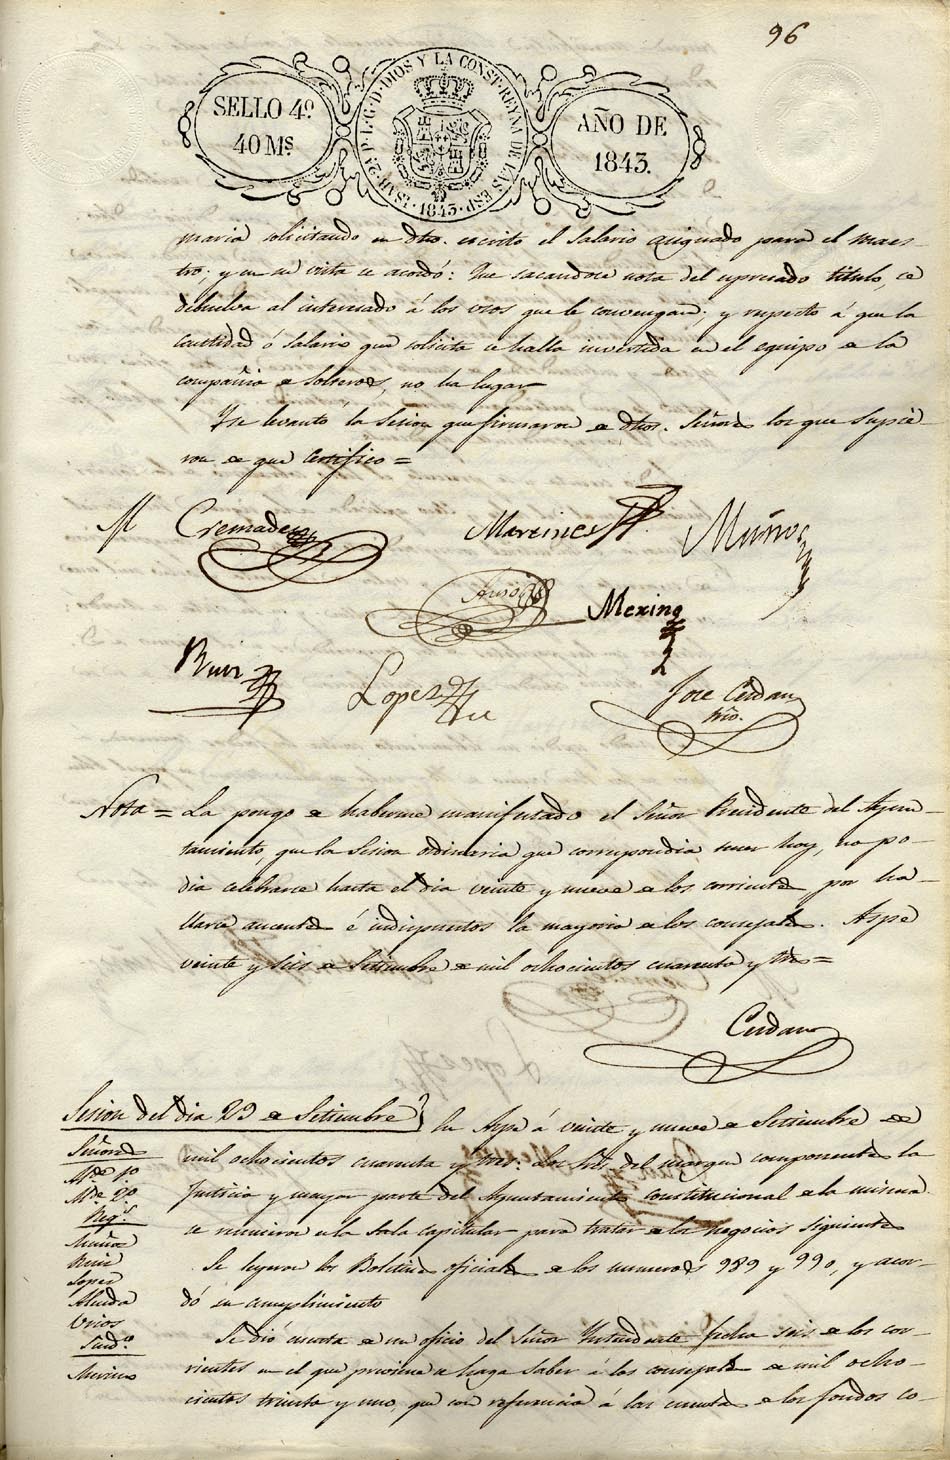 96
SELLO 4º
40 Ms
YSAB. 2ª P. L. G. D. DIOS Y LA CONST. REYNA DE LAS ESP. 1843.
AÑO DE
1843.
maria solicitando en dho. escrito el salario asignado para el maes-
tro; y en su vista se acordó: Que sacandose nota del espresado titulo, se
debuelva al interesado á los usos que le convengan; y respecto á que la
cantidad ó salario que solicita se halla invertida en el equipo de la
compañia de Solteros, no ha lugar
Y se levantó la Sesion que firmaron de dhos. Señores los que supie-
ron de que certifico =
M Cremades Martinez Muñoz
Merino
Ruiz Lopez Jose Cerdan
Srio.
Nota = La pongo de haberme manifestado el Señor Presidente del Ayun-
tamiento, que la Sesion ordinaria que correspondia tener hoy, no po-
dia celebrarse hasta el dia veinte y nueve de los corrientes por ha-
llarse ausentes é indispuestos la mayoria de los concejales. Aspe
veinte y seis de Setiembre de mil ochocientos cuarenta y tres =
Cerdan
Sesion del dia 29 de Setiembre
En Aspe á veinte y nueve de Setiembre de
mil ochocientos cuarenta y tres: Los Sres. del margen componentes la
Justicia y mayor parte del Ayuntamiento constitucional de la misma
se reunieron en la Sala capitular para tratar de los negocios siguientes
Se leyeron los Boletines oficiales de los numeros 989 y 990, y acor-
dó su cumplimiento
Se dió cuenta de un oficio del Señor Yntendente fecha seis de los cor-
rientes en el que previene se haga saber á los concejales de mil ocho-
cientos treinta y uno, que con referencia á las cuentas de los fondos co-
Señores
Alde. 1º
Alde. 2º
Regs.
Muñoz
Ruiz
Lopez
Almda
Urios
Sindº
Merino